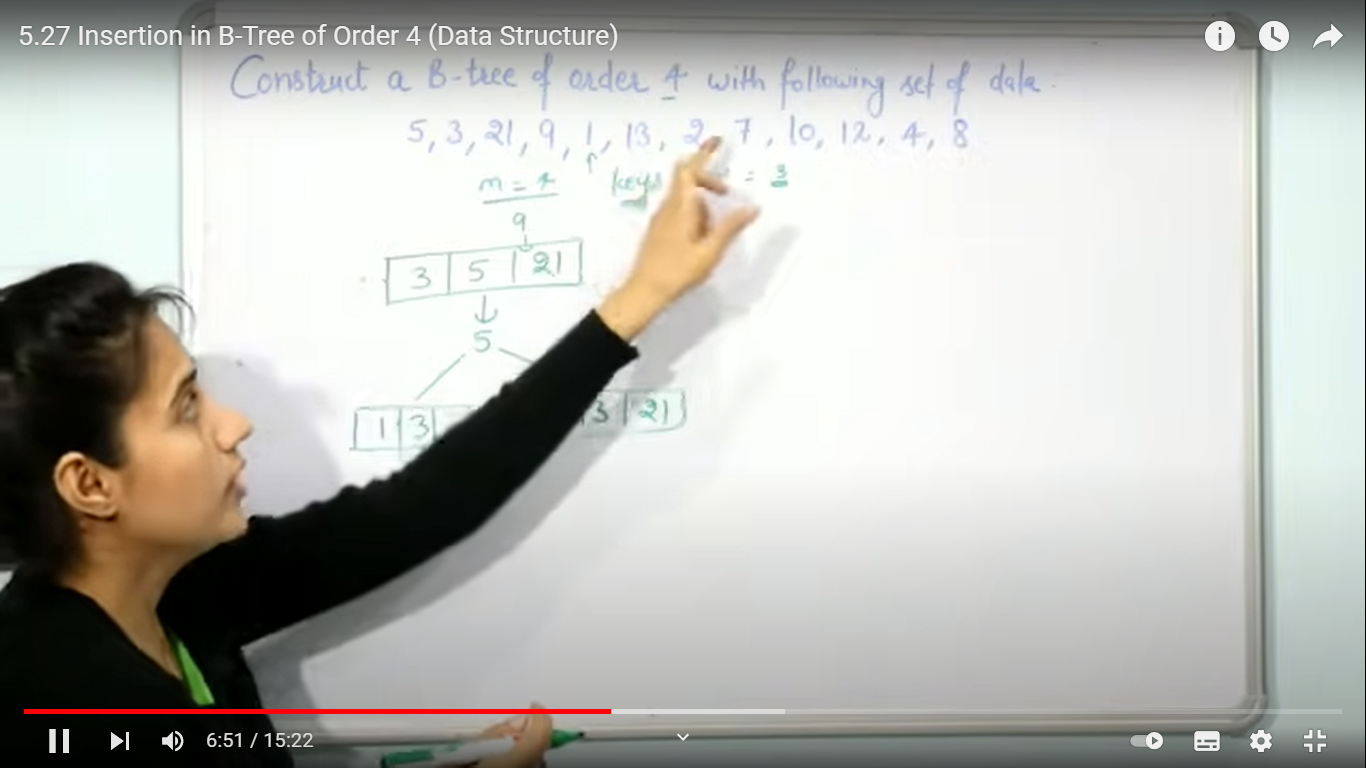 5.27 Insertion in B-Tree of Order 4 (Data Structure)
Construct a B-tree of order 4 with following set of data
5, 3, 21, 9, 1, 13, 2, 7, 10, 12, 4, 8
m = 4 keys = 3
9
3 5 21
5
1 3 3 21
6:51 / 15:22